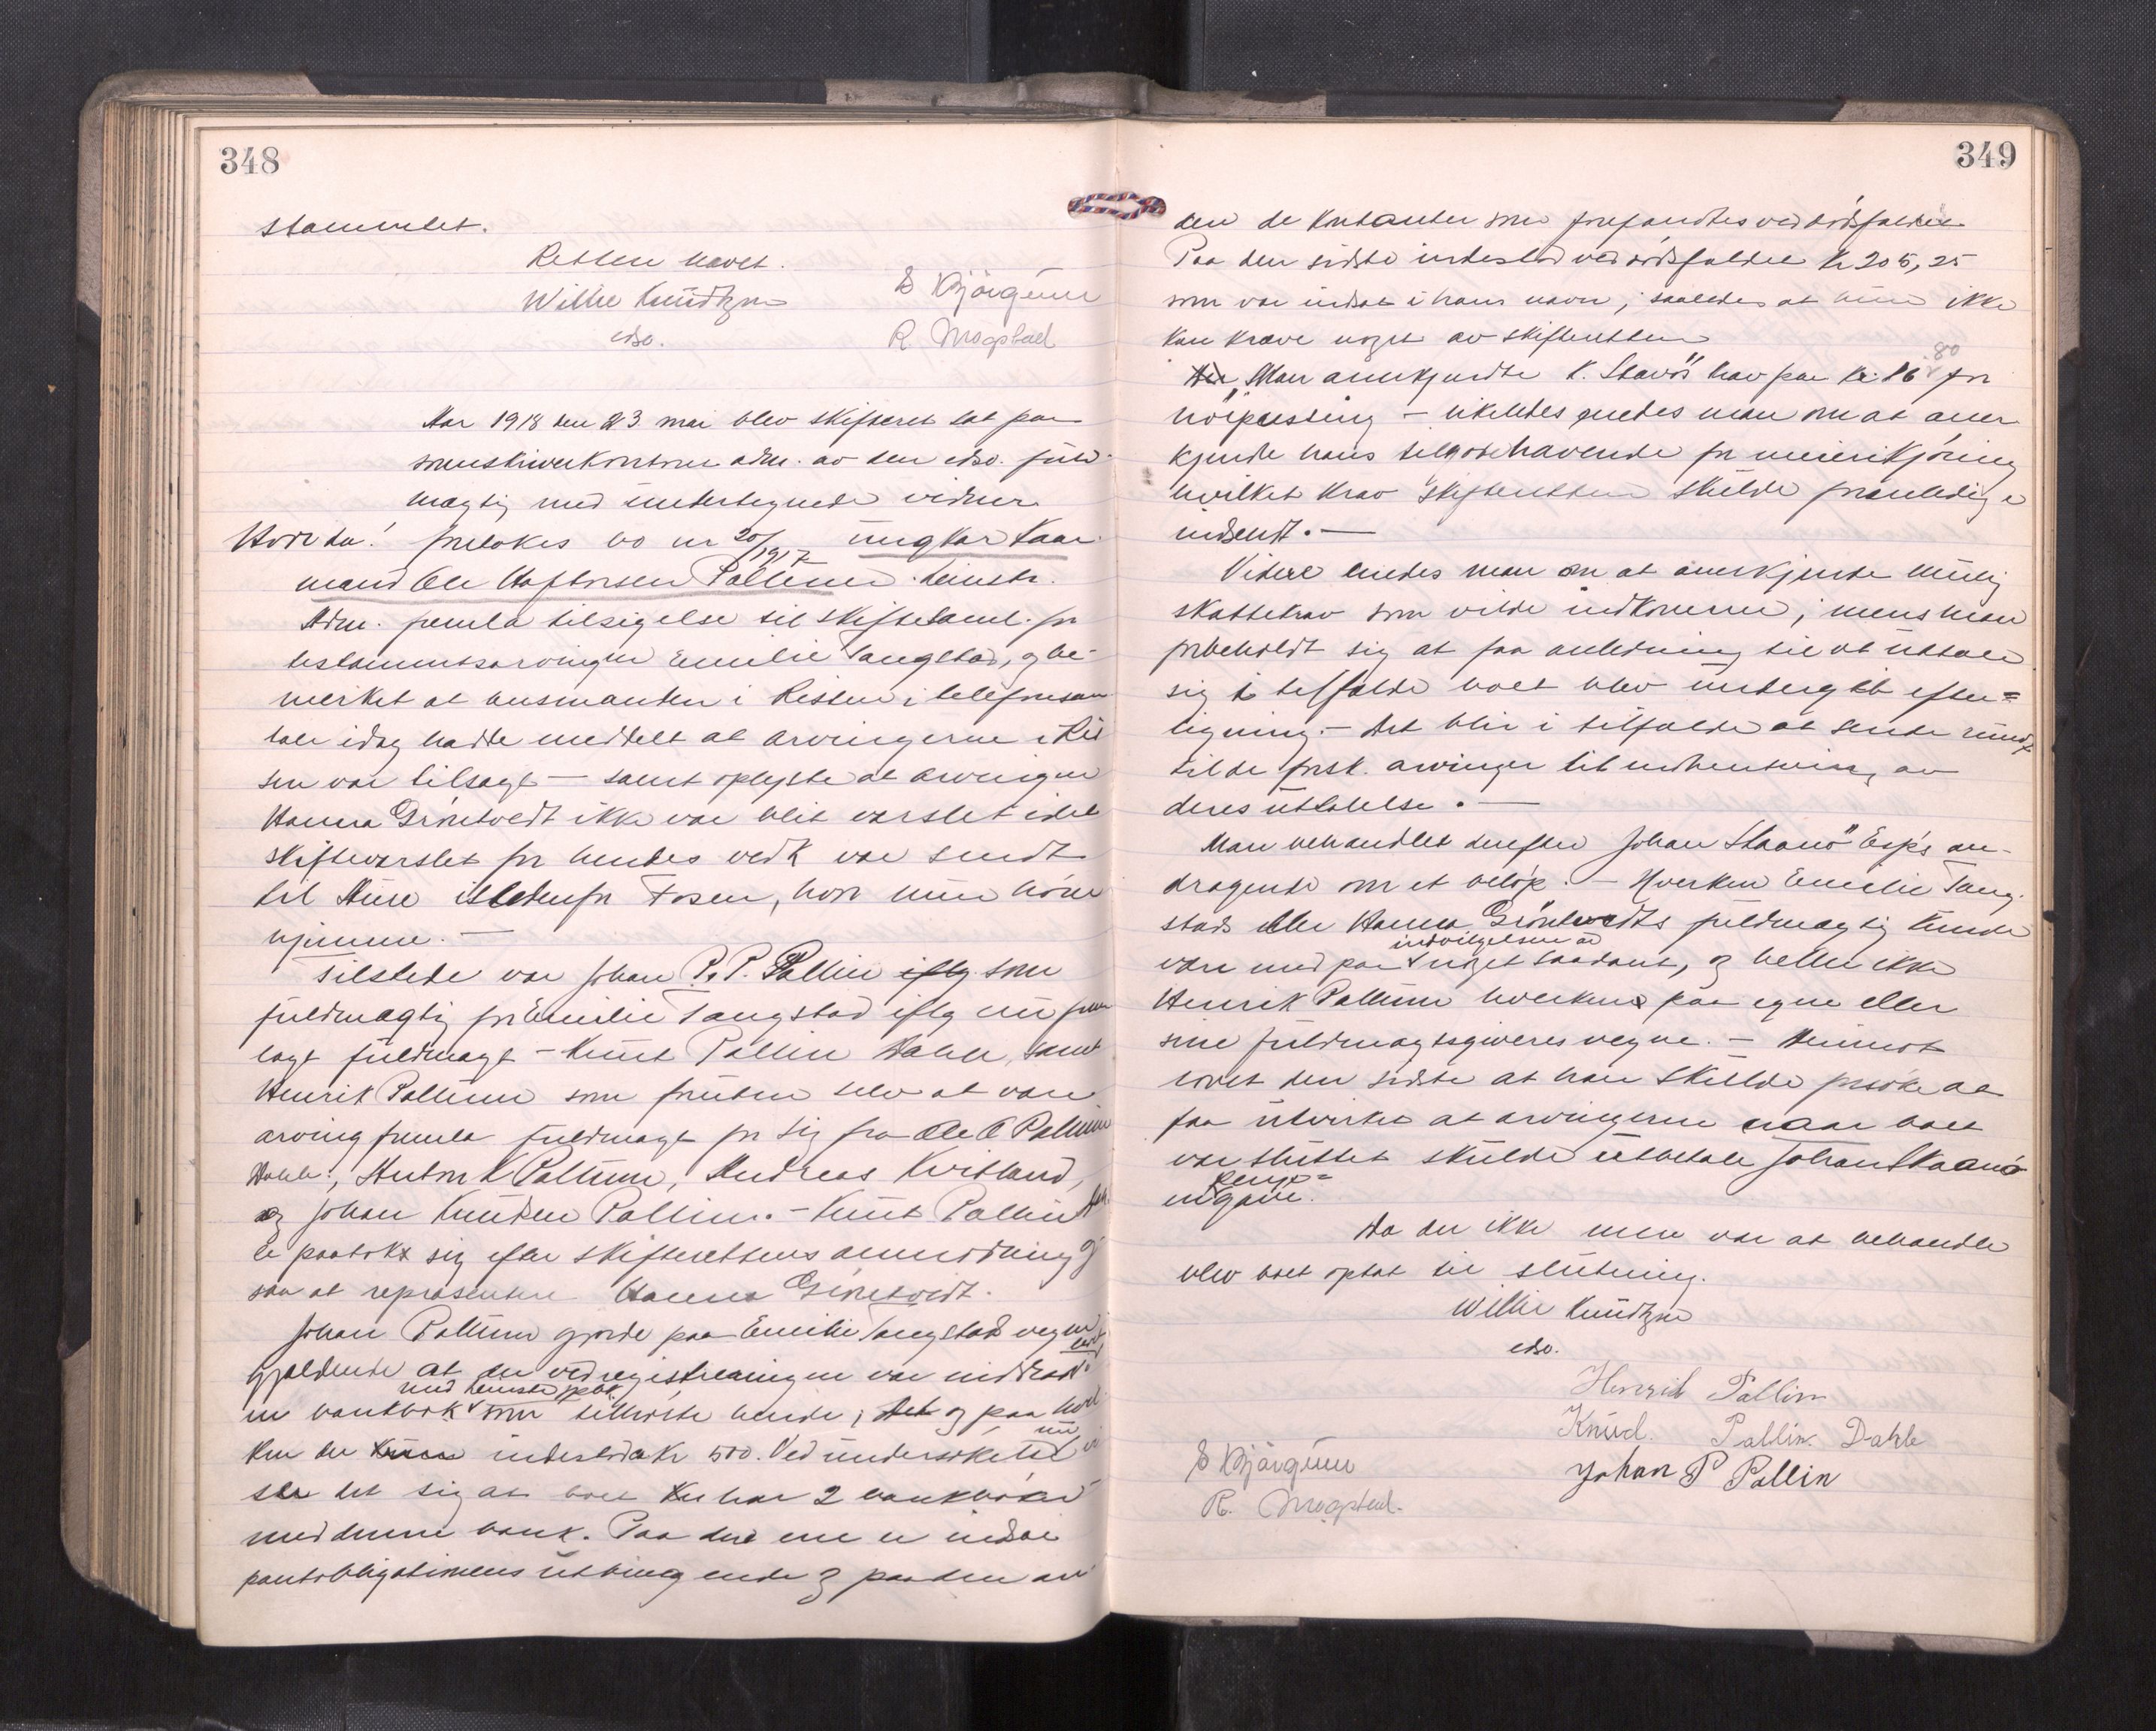 348
stammelet.
Retten hævet.
Willie Knudtzon
edsv.
S Bjørgum
R. Mogstad
Aar 1918 den 23 mai blev skifteret sat paa
sorenskriverkontoret adm. av den edsv. fuld-
mægtig med undertegnede vidner
Hvorda! foretokes bo nr 20/1917 ungkar Kaar-
mand Ole Hoftorsen Pallin Leinstr.
Adm. fremla tilsigelse til skiftesaml. for
testamentsarvingen Emilie Tangstad, og be-
merket at lensmanden i Rissen i telefonsam-
tale idag hadde meddelt at arvingerne i Ris-
sen var tilsagt — samt oplyste at arvingen
Hanna Grøntvedt ikke var blit varslet idet
skiftevarslet for hendes vedk var sendt
til Aure istedenfor Fosen, hvor hun hører
hjemme. —
Tilstede var Johan P. P. Pallin iflg som
fuldmægtig for Emilie Tangstad iflg nu frem-
lagt fuldmagt – Knut Pallin Dahle, samt
Henrik Pallin som foruten selv at være
arving fremla fuldmagt for sig fra Ole O Pallin
Dahle, Anton K Pallin, Andreas Kvitland,
og Johan Knudsen Pallin. – Knut Pallin Dah-
le paatok sig efter skifterettens anmodning og-
saa at repræsentere Hanna Grøntvedt.
Johan Pallin gjorde paa Emilie Tangstads vegne
gjældende at der ved registreringen var inddrat
en bankbok med Leinstr. spbk. som tilhørte hende; det og paa hvil-
ken der indestod kr 500. Ved undersøkelse nu vi-
ser det sig at boet har 2 bankbøker
med denne bank. Paa den ene er indsat
pantobligationens utbringende og paa den an-
349
den de kontanter som forefandtes ved dødsfaldet
Paa den sidste indestod ved dødsfaldet kr 205,25
som var indsat i hans navn; saaledes at hun ikke
kan kræve noget av skifteretten
Man anerkjendte K. Stavøs krav paa kr. 16 80 for
høipresning – likeledes enedes man om at aner-
kjende hans tilgodehavende for meierikjøring
hvilket krav skifteretten skulde foranledige
indsendt. —
Videre enedes man om at anerkjende mulig
skattekrav som vilde indkomme; mens man
forbeholdt sig at faa anledning til at uttale
sig i tilfælde boet blev undergit efter=
ligning. – Det blir i tilfælde at sende rund
til de forsk. arvinger til indhentning av
deres uttalelse. —
Man behandlet derefter Johan Staanø Esp's an-
dragende om et beløp. – Hverken Emilie Tang-
stads eller Hanna Grøntvedts fuldmægtig kunde
være med paa indvilgelsen av noget saadant, og heller ikke
Henrik Pallin hverken paa egne eller
sine fuldmagtsgiveres vegne. – Derimot
lovet den sidste at han skulde forsøke at
faa utvirket at arvingerne naar boet
var sluttet skulde utbetale Johan Staanø
en penge=
gave.
Da der ikke mere var at behandle
blev boet optat til slutning.
Willie Knudtzon
edsv.
Henrik Pallin
Knud. Pallin. Dahle
Johan P Pallin
S Bjørgum
R. Mogstad.